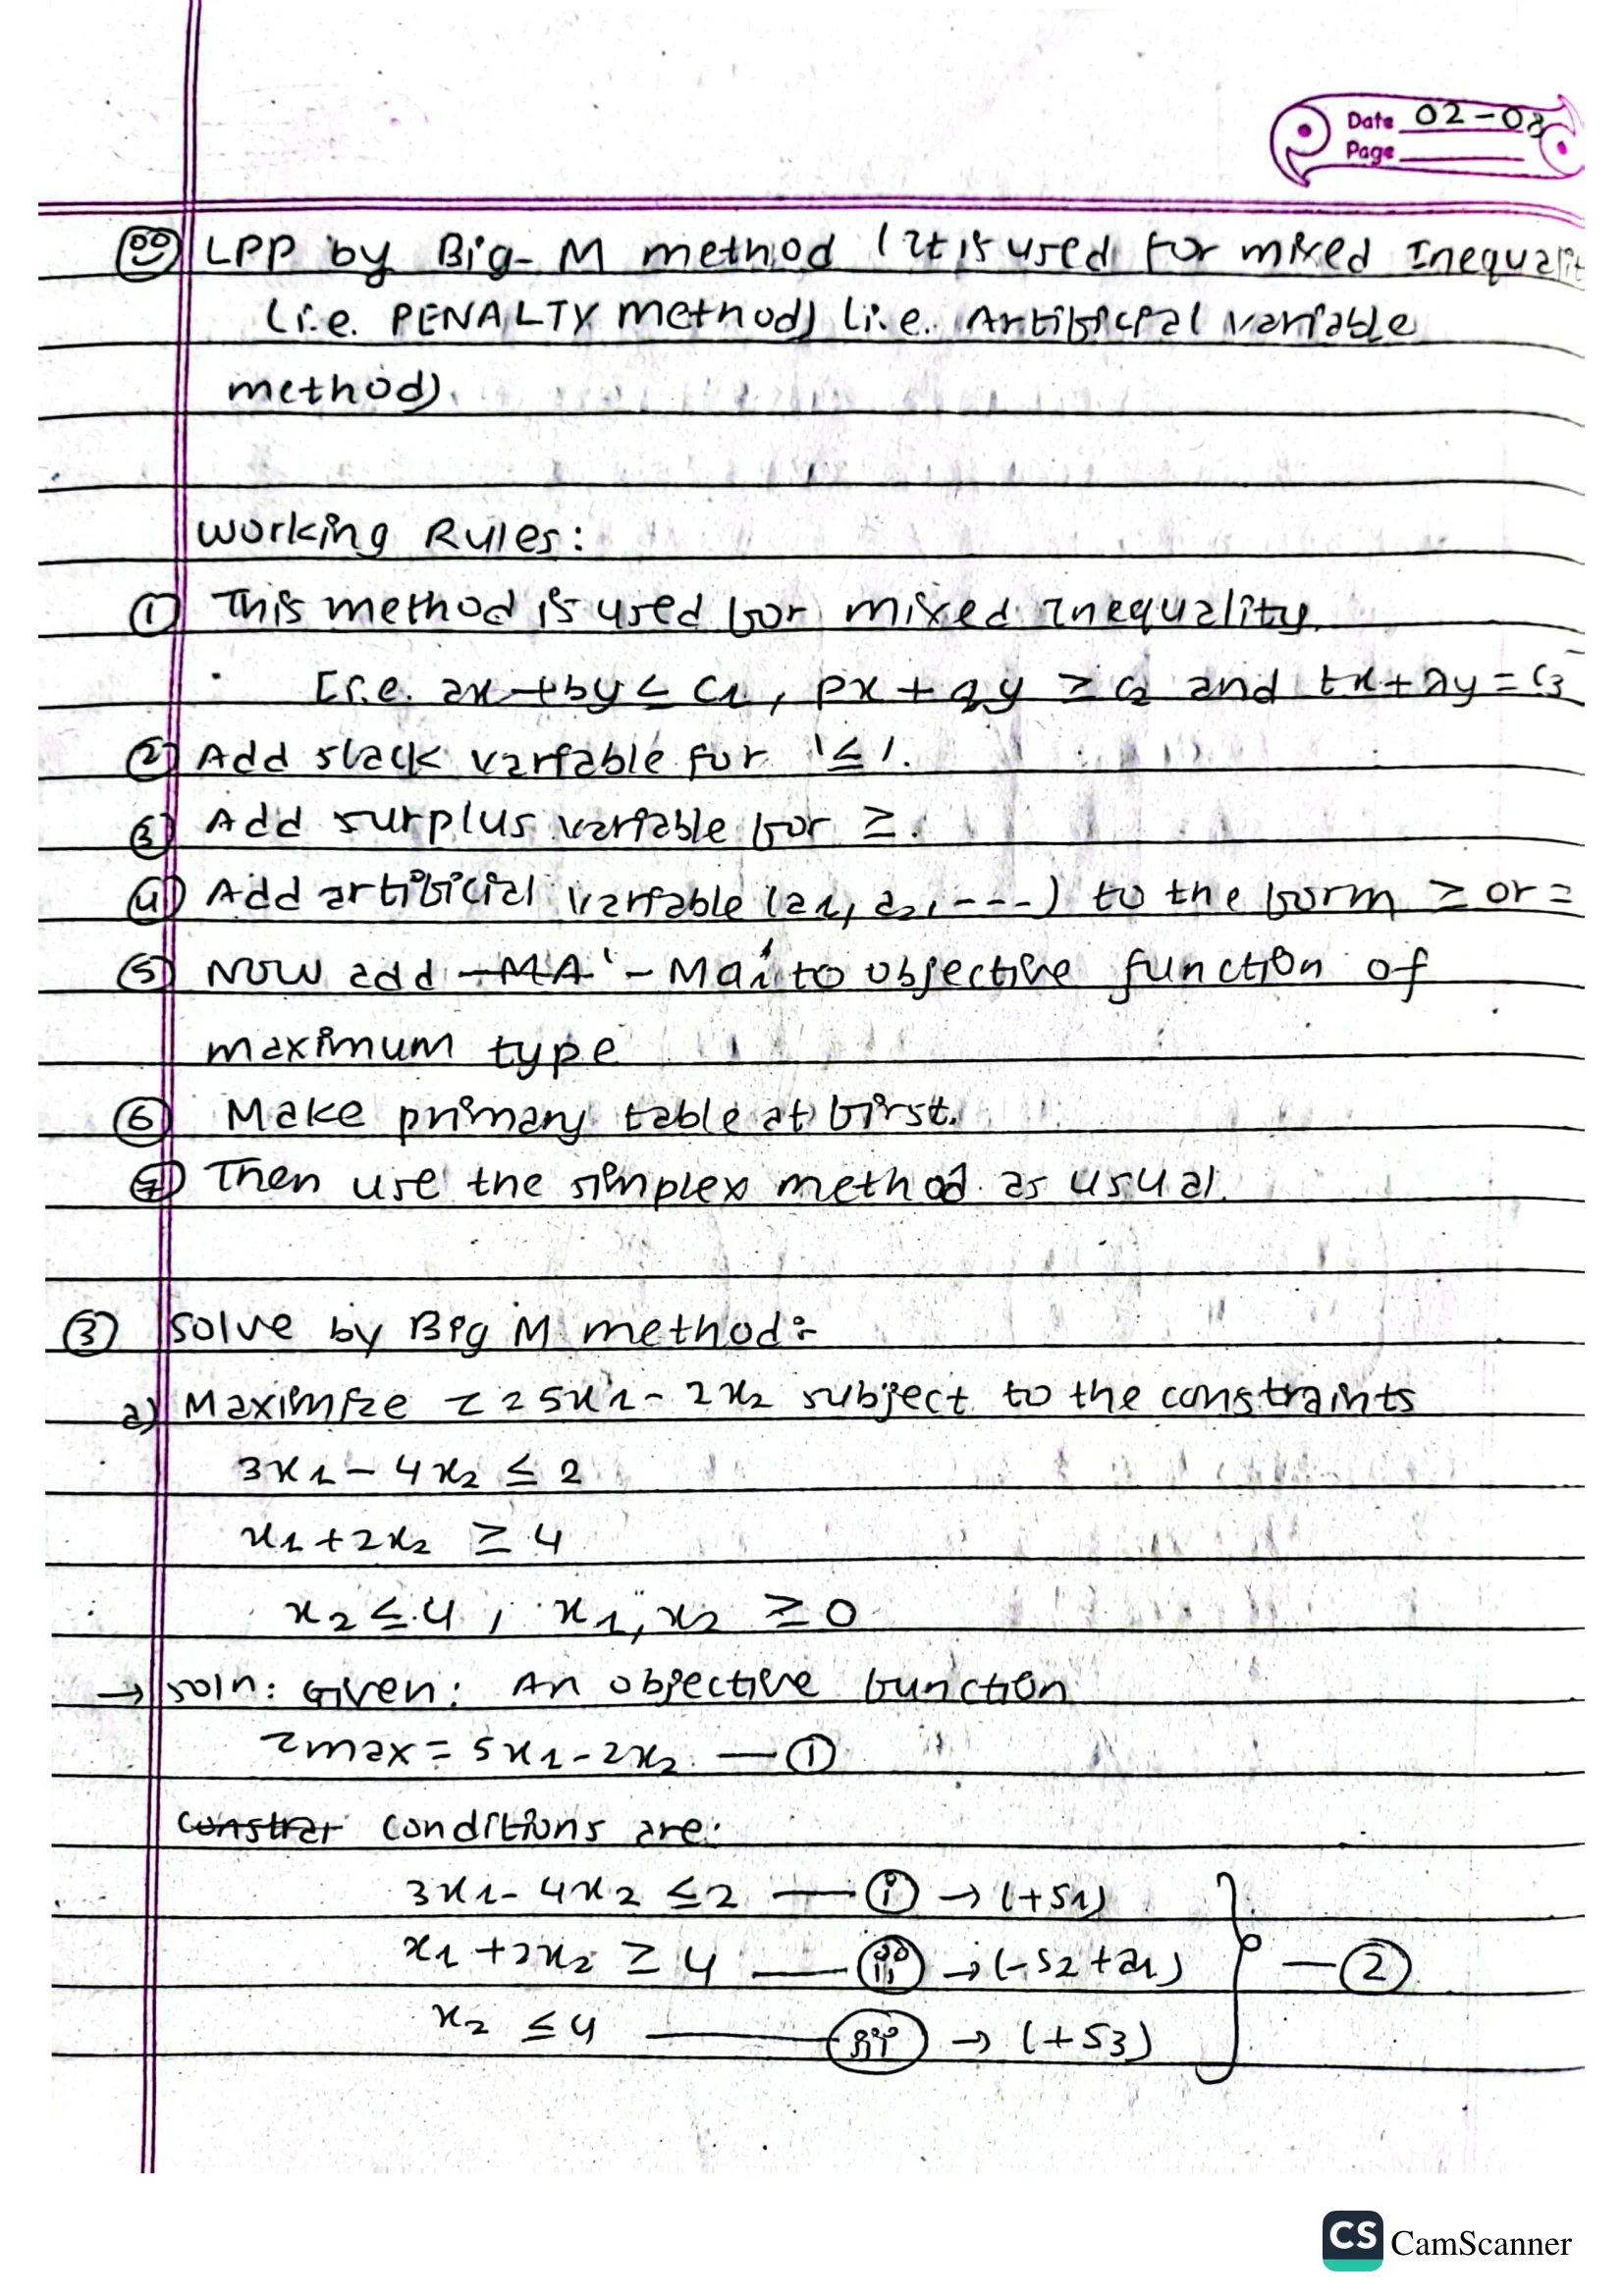 Date 02-08
Page
LPP by Big-M method (It is used for mixed Inequalit
(i.e. PENALTY method) (i.e. Artificial variable
method).
working Rules:
① This method is used for mixed inequality.
[i.e. ax+by ≤ c1, px+qy ≥ c2 and tx+ry = c3
② Add slack variable for '≤'.
③ Add surplus variable for ≥.
④ Add artificial variable (a1, a2, ---) to the form ≥ or =
⑤ Now add -MA' -Mai to objective function of
maximum type
⑥ Make primary table at first.
⑦ Then use the simplex method as usual.
③ solve by Big M method:-
a) Maximize z = 5x1 - 2x2 subject to the constraints
3x1 - 4x2 ≤ 2
x1 + 2x2 ≥ 4
x2 ≤ 4, x1, x2 ≥ 0
→ soln: Given: An objective function
zmax = 5x1 - 2x2 — ①
constrai conditions are:
3x1 - 4x2 ≤ 2 — (i) → (+s1)
x1 + 2x2 ≥ 4 — (ii) → (-s2 + a1) } — ②
x2 ≤ 4 — (iii) → (+s3)
CS CamScanner